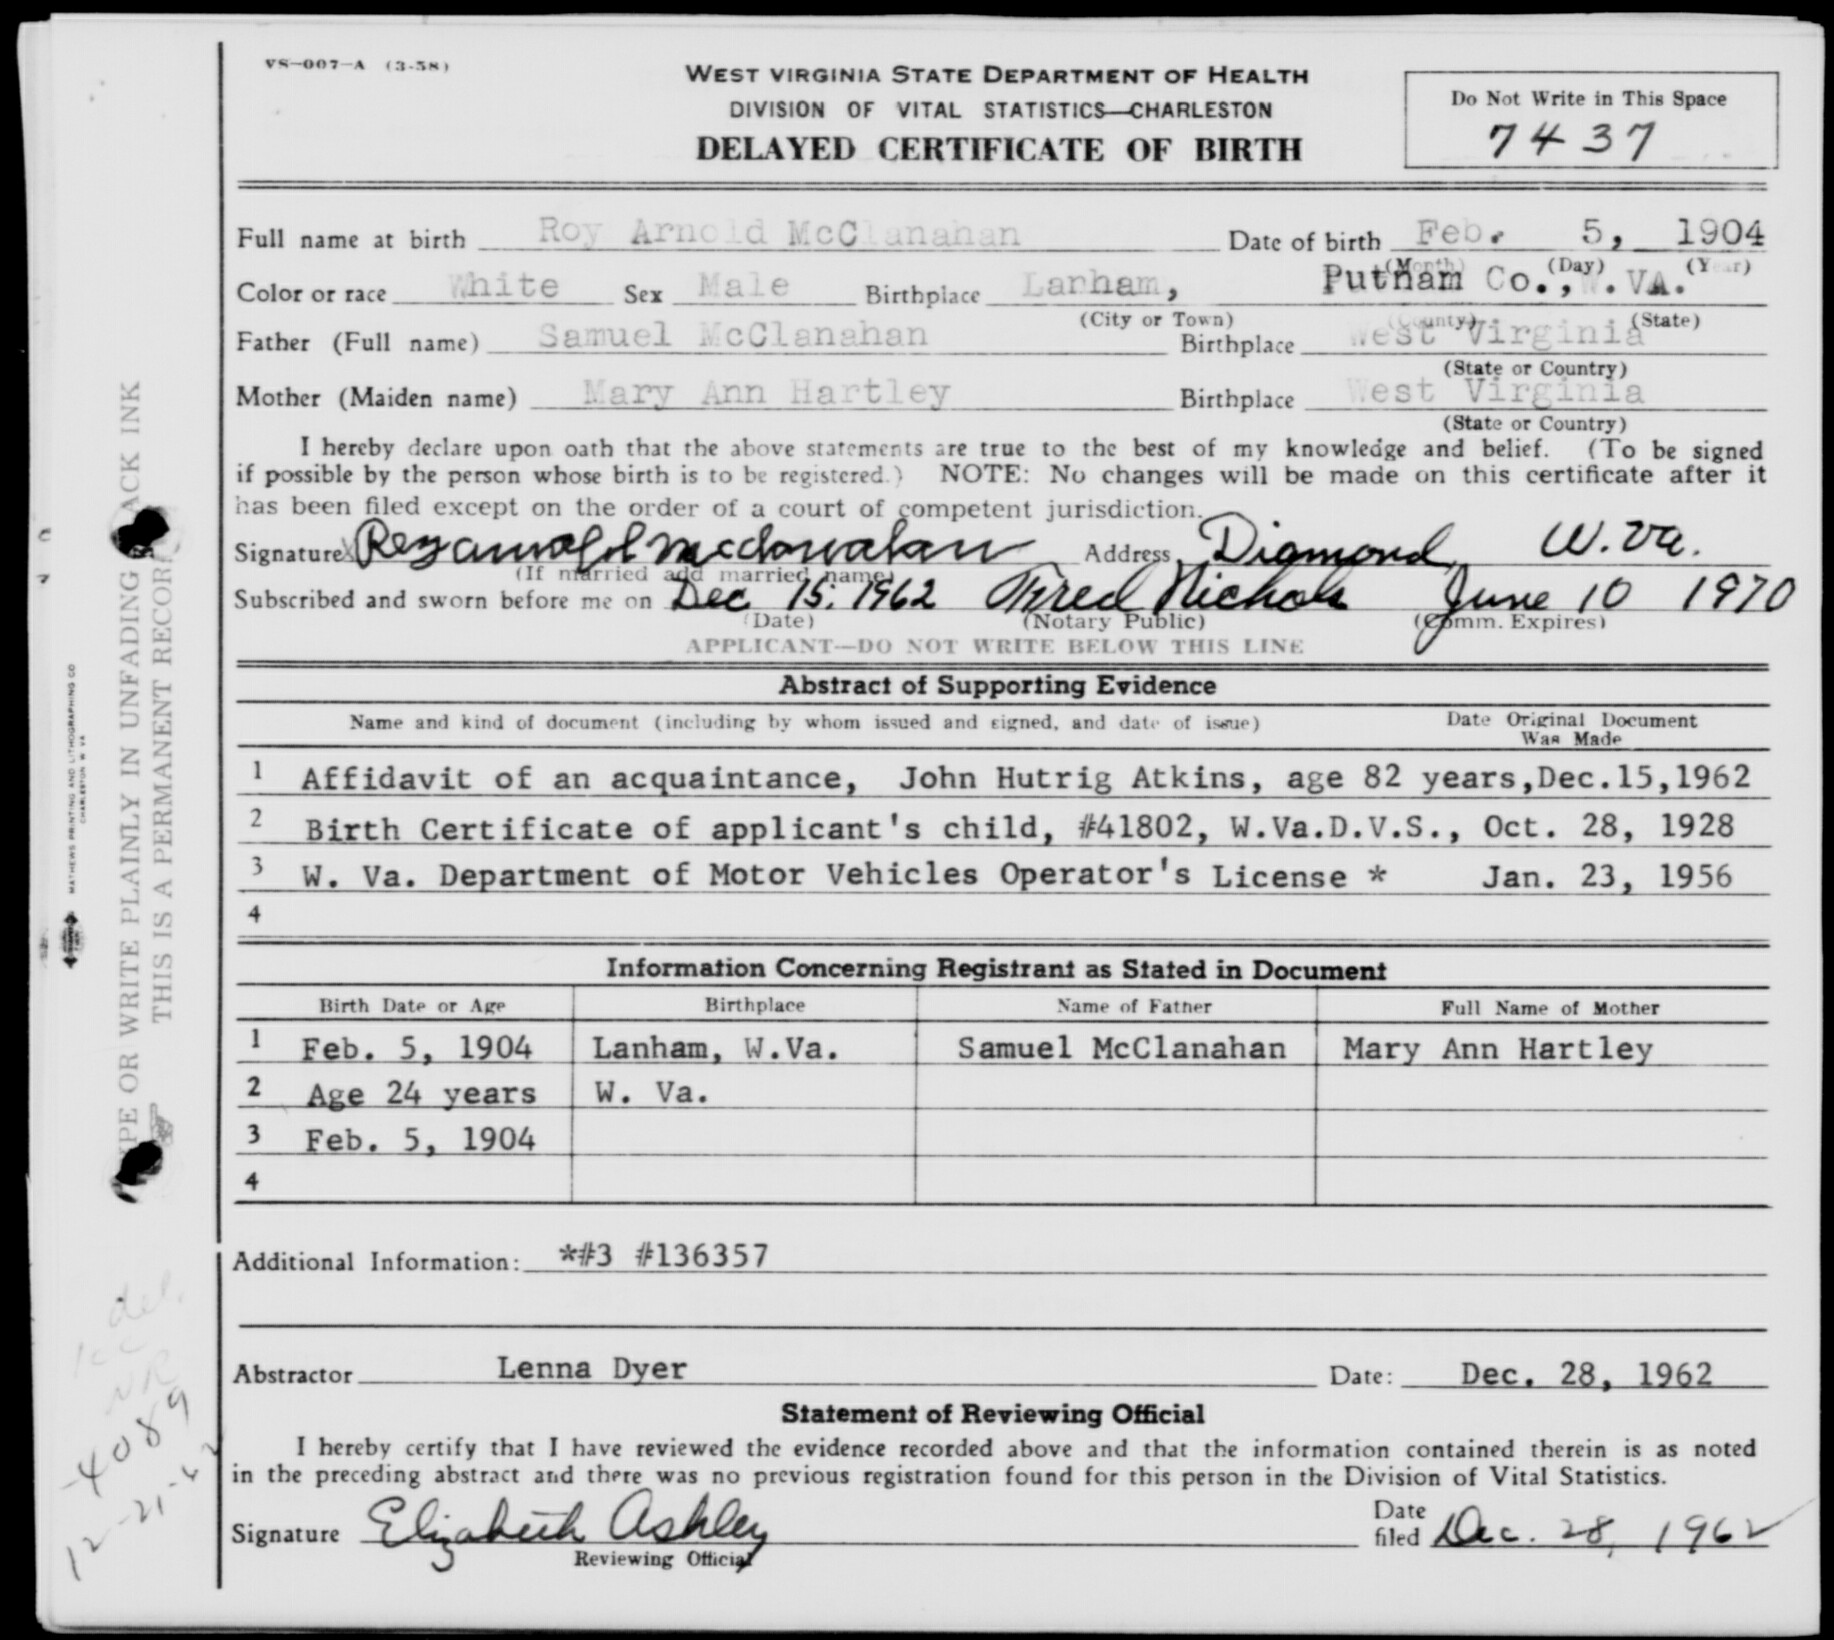 VS-007-A (3-58)
WEST VIRGINIA STATE DEPARTMENT OF HEALTH
DIVISION OF VITAL STATISTICS—CHARLESTON
DELAYED CERTIFICATE OF BIRTH
Do Not Write in This Space
7437
Full name at birth Roy Arnold McClanahan Date of birth Feb. 5, 1904
(Month) (Day) (Year)
Color or race White Sex Male Birthplace Lanham, Putnam Co., W. VA.
(City or Town) (County) (State)
Father (Full name) Samuel McClanahan Birthplace West Virginia
(State or Country)
Mother (Maiden name) Mary Ann Hartley Birthplace West Virginia
(State or Country)
I hereby declare upon oath that the above statements are true to the best of my knowledge and belief. (To be signed
if possible by the person whose birth is to be registered.) NOTE: No changes will be made on this certificate after it
has been filed except on the order of a court of competent jurisdiction.
Signature Address Diamond, W. Va.
(If married add married name)
Subscribed and sworn before me on Dec 15, 1962 Fred Nichols June 10 1970
(Date) (Notary Public) (Comm. Expires)
APPLICANT—DO NOT WRITE BELOW THIS LINE
Abstract of Supporting Evidence
Name and kind of document (including by whom issued and signed, and date of issue) Date Original Document
Was Made
1 Affidavit of an acquaintance, John Hutrig Atkins, age 82 years, Dec.15,1962
2 Birth Certificate of applicant's child, #41802, W.Va.D.V.S., Oct. 28, 1928
3 W. Va. Department of Motor Vehicles Operator's License * Jan. 23, 1956
4
Information Concerning Registrant as Stated in Document
Birth Date or Age Birthplace Name of Father Full Name of Mother
1 Feb. 5, 1904 Lanham, W.Va. Samuel McClanahan Mary Ann Hartley
2 Age 24 years W. Va.
3 Feb. 5, 1904
4
Additional Information: *#3 #136357
Abstractor Lenna Dyer Date: Dec. 28, 1962
Statement of Reviewing Official
I hereby certify that I have reviewed the evidence recorded above and that the information contained therein is as noted
in the preceding abstract and there was no previous registration found for this person in the Division of Vital Statistics.
Signature Elizabeth Ashley Date
filed Dec. 28, 1962
Reviewing Official
TYPE OR WRITE PLAINLY IN UNFADING BLACK INK
THIS IS A PERMANENT RECORD
MATHEWS PRINTING AND LITHOGRAPHING CO
CHARLESTON W VA
del.
NR
4089
12-21-62